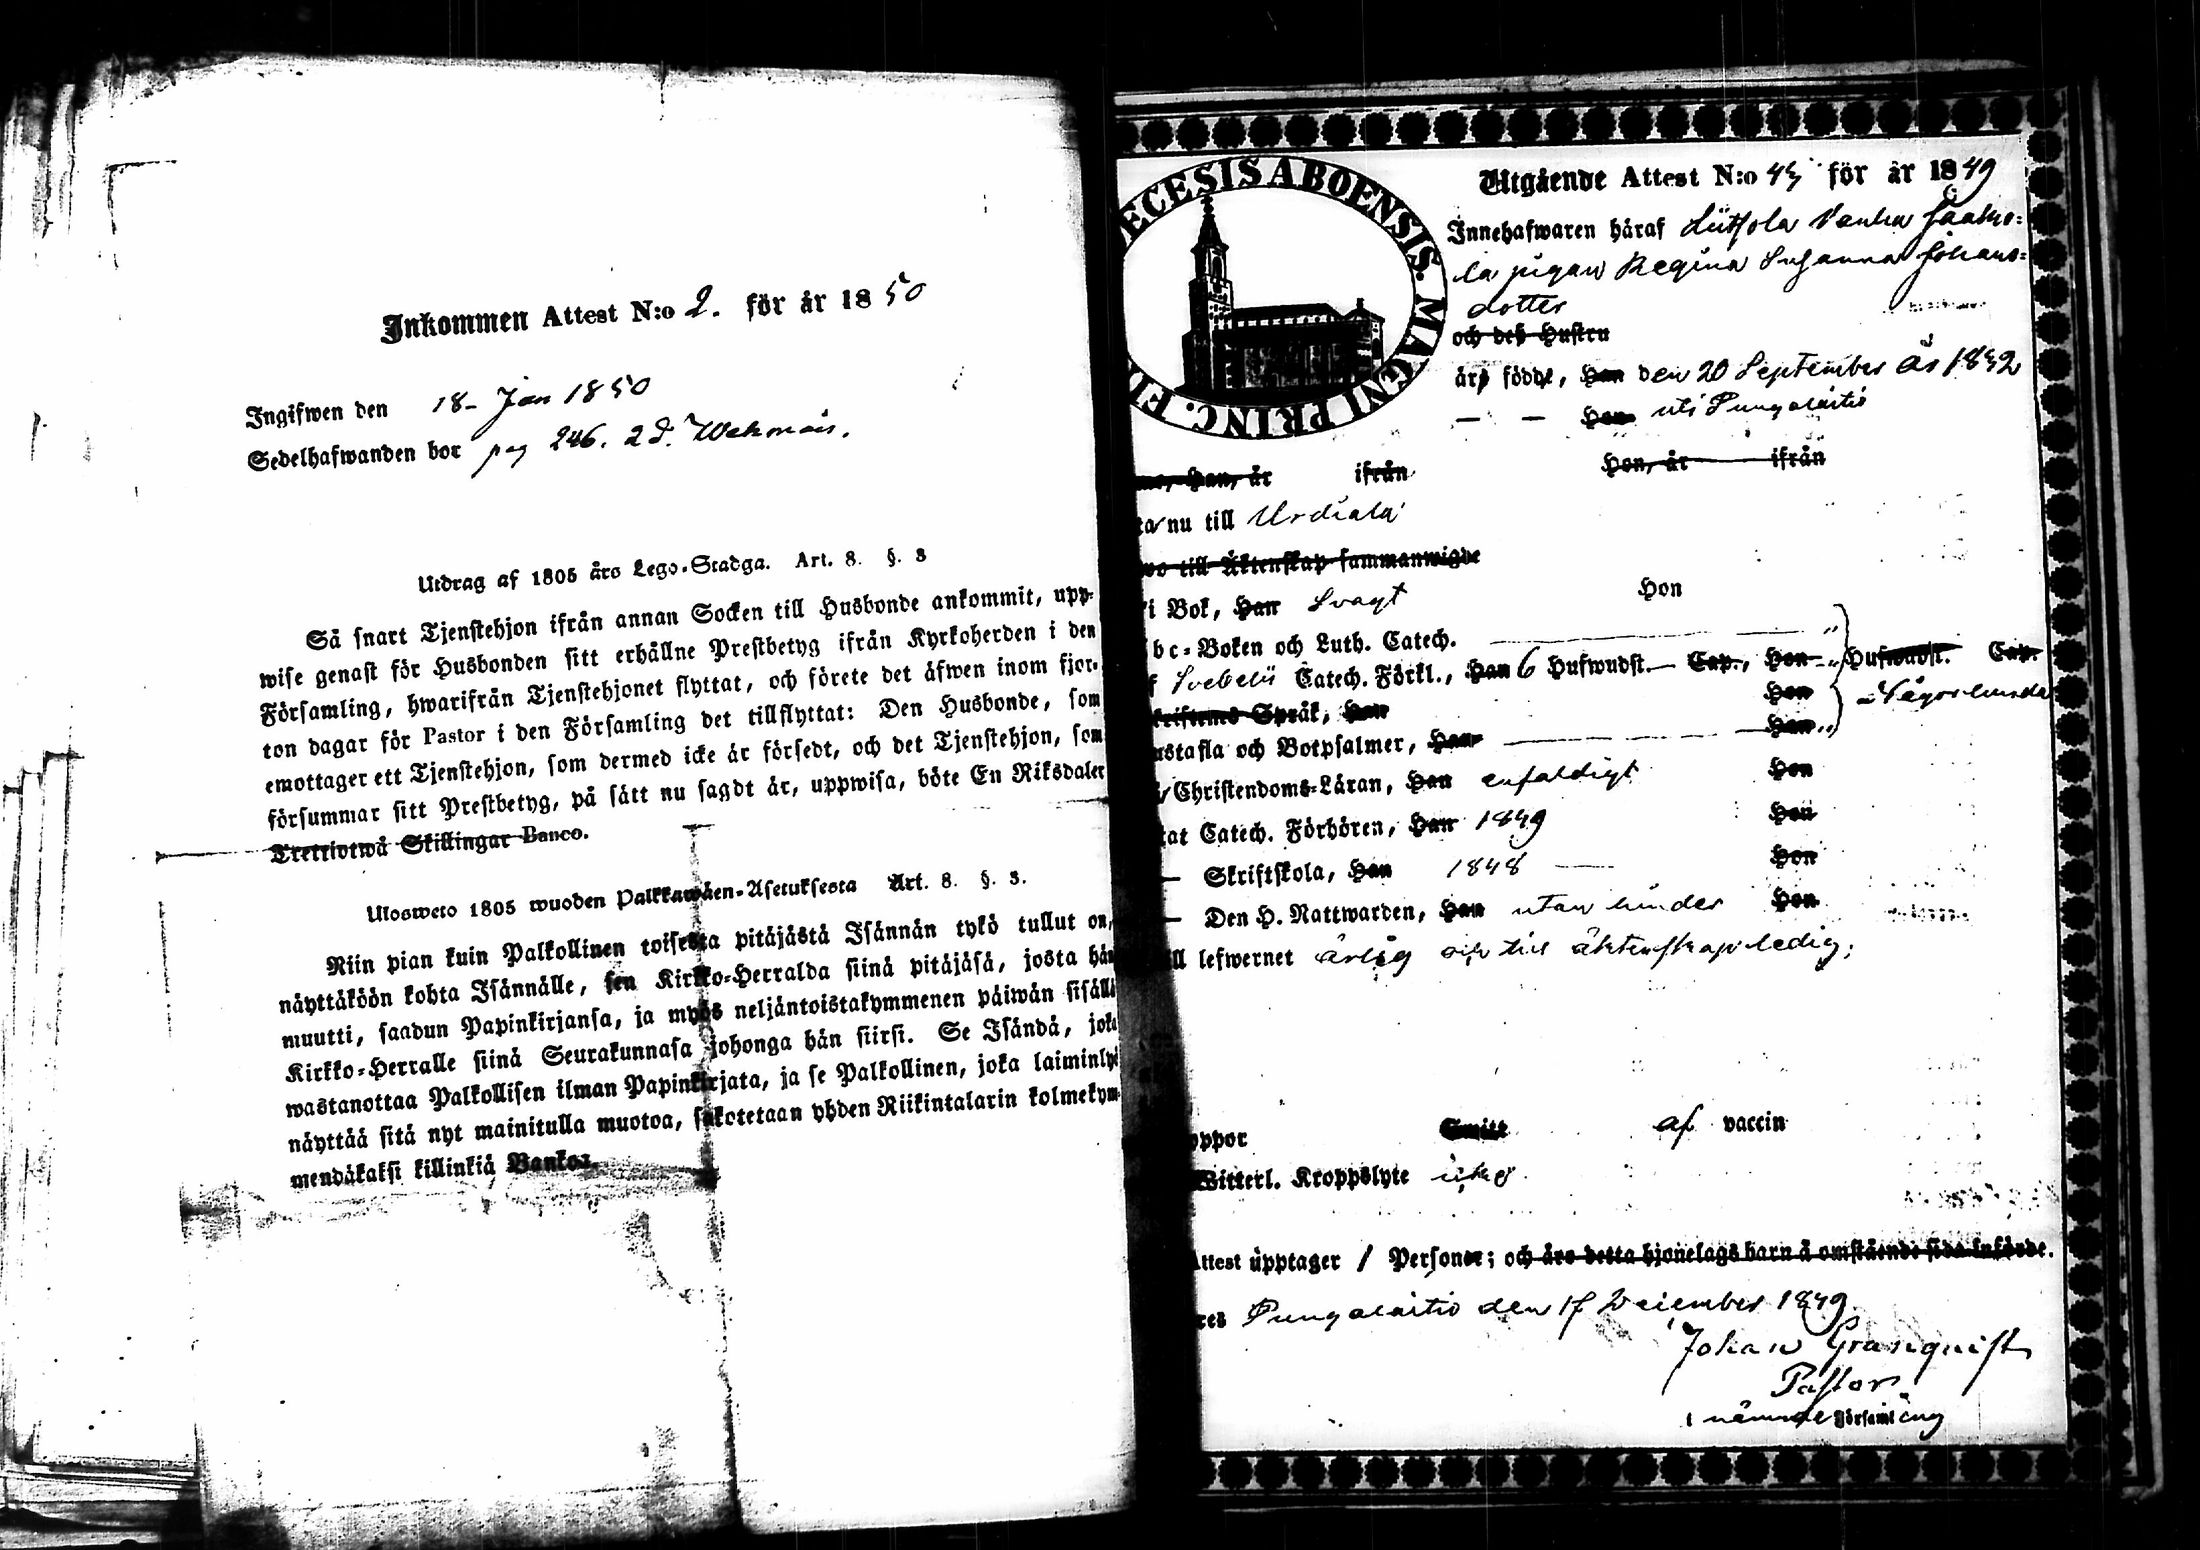 Inkommen Attest N:o 2. för år 1850
Ingifwen den 18 Jan 1850
Sedelhafwanden bor pag 246. 2 d.
Utdrag af 1805 års Lego-Stadga. Art. 8. §. 3
Så snart Tjenstehjon ifrån annan Socken till Husbonde ankommit, upp-
wise genast för Husbonden sitt erhållne Prestbetyg ifrån Kyrkoherden i den
Församling, hwarifrån Tjenstehjonet flyttat, och förete det äfwen inom fjor-
ton dagar för Pastor i den Församling det tillflyttat: Den Husbonde, som
emottager ett Tjenstehjon, som dermed icke är försedt, och det Tjenstehjon, som
försummar sitt Prestbetyg, på sätt nu sagdt är, uppwisa, böte En Riksdaler
Trettiotwå Skillingar Banco.
Ulosweto 1805 wuoden Palkkawäen-Asetuksesta Art. 8. §. 3.
Niin pian kuin Palkollinen toisesta pitäjästä Isännän tykö tullut on,
näyttäköön kohta Isännälle, sen Kirkko-Herralda siinä pitäjäsä, josta hän
muutti, saadun Papinkirjansa, ja myös neljäntoistakymmenen päiwän sisällä
Kirkko-Herralle siinä Seurakunnasa johonga hän siirsi. Se Isändä, joka
wastanottaa Palkollisen ilman Papinkirjata, ja se Palkollinen, joka laiminlyö
näyttää sitä nyt mainitulla muotoa, sakotetaan yhden Riikintalarin kolmekym-
mendäkaksi killinkiä Bankoa.
ECESIS ABOENSIS. MAGNI PRINC. FI
Utgående Attest N:o 43 för år 1849
Innehafwaren häraf Liitsola Vanha Jaako-
la pigan Regina Susanna Johans-
dotter
och deß Hustru
äro födde, Han den 20 September år 1832
— — Hon uti Pungalaitio
Han, är ifrån Hon, är ifrån
nu till Urdiala
till Äktenskap sammanwigde
i Bok, Han Svagt Hon
bc-Boken och Luth. Catech.
Svebelii Catech. Förkl., Han 6 Hufwudst. Cap., Hon Hufwudst. Cap.
Språk, Han Hon
Någorlunda
ustafla och Botpsalmer, Han Hon
Christendoms-Läran, Han enfaldigt Hon
tat Catech. Förhören, Han 1849 Hon
— Skriftskola, Han 1848 Hon
— Den H. Nattwarden, Han utan hinder Hon
ll lefwernet ärlig och till äktenskap ledig;
oppor Smitt af vaccin
Witterl. Kroppslyte
Attest upptager 1 Personer; och äro detta hjonelags barn å omstående sida införde.
Pungalaitio den 17 December 1849.
Johan Granqvist
Pastor
i nämnde Församling